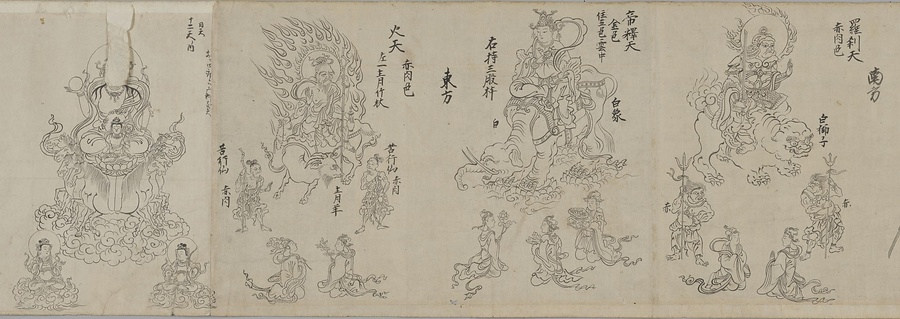 羅刹天
赤肉色
南方
白獅子
赤
赤
帝釋天
金色
住五色雲中
白象
右持三股杵
白
東方
火天
赤肉色
左一
青羊
苦行仙 赤肉
苦行仙
赤肉
日天
十二天ノ内